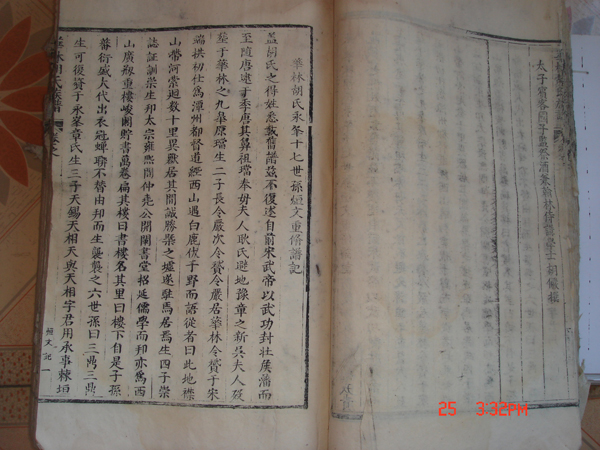 太子賓客國子監祭酒兼翰林侍講學士胡儼撰
華林胡氏永年十七世孫烜文重脩譜記
蓋胡氏之得姓悉載舊譜茲不復述自前宋武帝以武功封壯侯藩而
至隋唐逮于季唐其鼻祖璫奉母夫人耿氏避地豫章之新吳夫人歿
塟于華林之九皐原璫生二子長令嚴次令賓令嚴居華林令賓于宋
端拱初仕為潭州都督道經西山過白鹿伏于野而語從者曰此地襟
山帶河縈迴數十里異獸居其間誠勝槩之墟遂駐馬居焉生四子崇
誌証訓崇生邦太宗雍熙間仲堯公開闢書堂招延儒學而邦亦為西
山廣剏重樓峻閣貯書萬卷徧其樓曰書樓名其里曰樓下自是子孫
蕃衍盛大代出衣冠蟬聯不替由邦而生襲襲之六世孫曰三鼎三鼎
生可復資于永峯章氏生三子天錫天相天與天相字君用承事棘垣
華林胡氏族譜
烜文記一
25 3:32PM